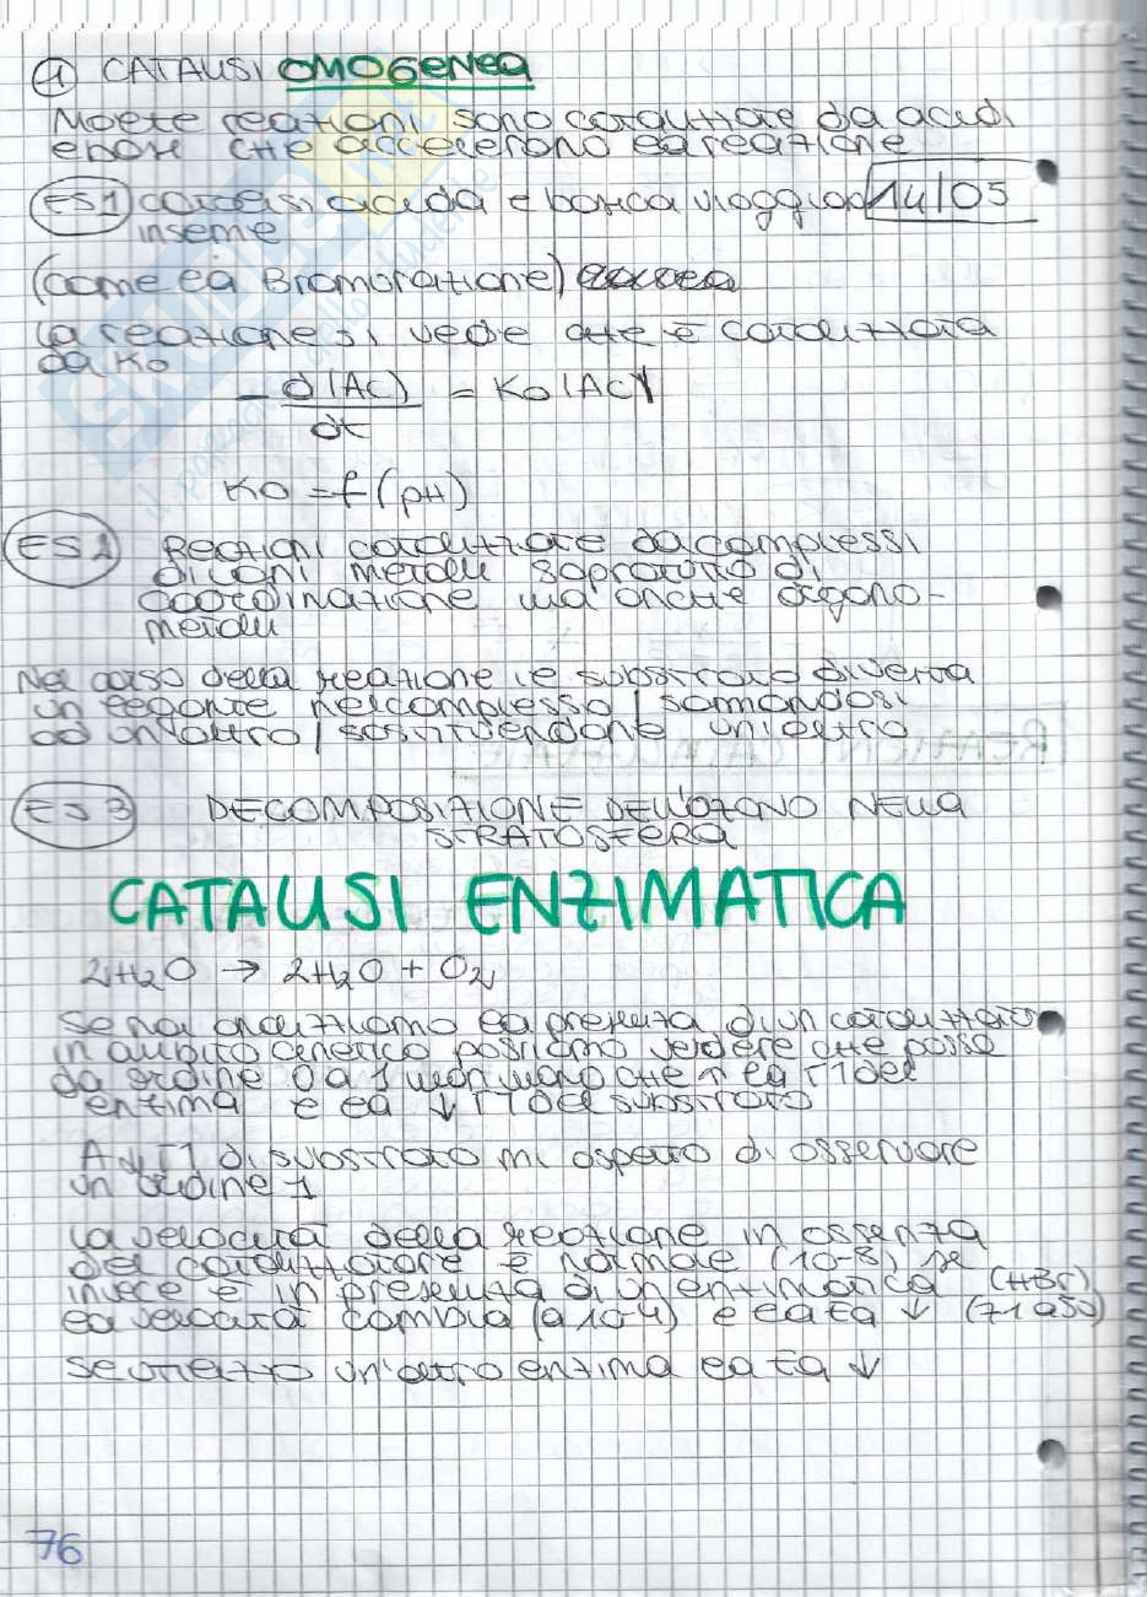 a CATALISI OMOGENEA
Molte reazioni sono catalizzate da acidi
e basi che accelerano la reazione
14/05
ES1 catalisi acida e basica viaggiano
insieme
(come la Bromorazione)
la reazione si vede che è catalizzata
da K0
- d[AC] = K0 [AC]
dt
K0 = f(pH)
ES2 Reazioni catalizzate da complessi
di ioni metalli sopratutto di
coordinazione ma anche organo-
metalli
Nel corso della reazione il substrato diventa
un legante nel complesso / sommandosi
ad un altro / sostituendone un'altro
ES3 DECOMPOSIZIONE DELL'OZONO NELLA
STRATOSFERA
CATALISI ENZIMATICA
2H2O → 2H2O + O2
Se noi analizziamo la presenza di un catalizzatore
in ambito cinetico possiamo vedere che passa
da ordine 0 a 1 man mano che ↑ la [] del
enzima e la ↓ [] del substrato
A [] di substrato mi aspetto di osservare
un ordine 1
la velocità della reazione in assenza
del catalizzatore è normale (10-8), se
invece è in presenza di un enzimatica (HBr)
la velocità cambia (a 10-4) e la Ea ↓ (71 a 50)
Se metto un'altro enzima la Ea ↓
76